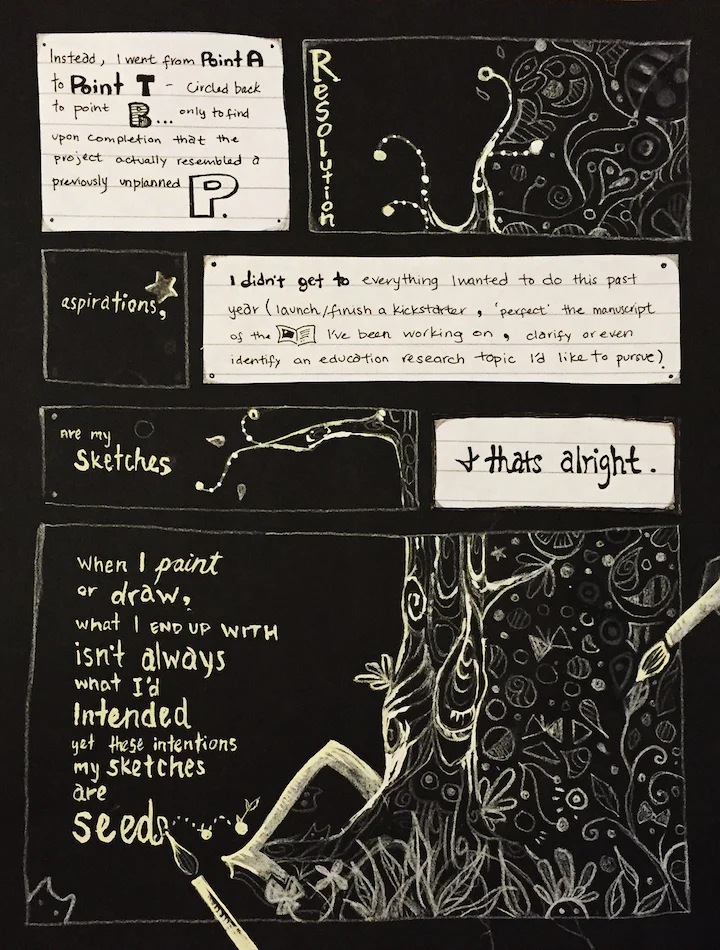 Instead, I went from Point A
to Point T - circled back
to point B... only to find
upon completion that the
project actually resembled a
previously unplanned P.
Resolution
aspirations,
I didn't get to everything I wanted to do this past
year (launch/finish a kickstarter, 'perfect' the manuscript
of the I've been working on, clarify or even
identify an education research topic I'd like to pursue)
Are my
Sketches
& thats alright.
when I paint
or draw,
what I END UP WITH
isn't always
what I'd
Intended
yet these intentions
my sketches
are
seeds